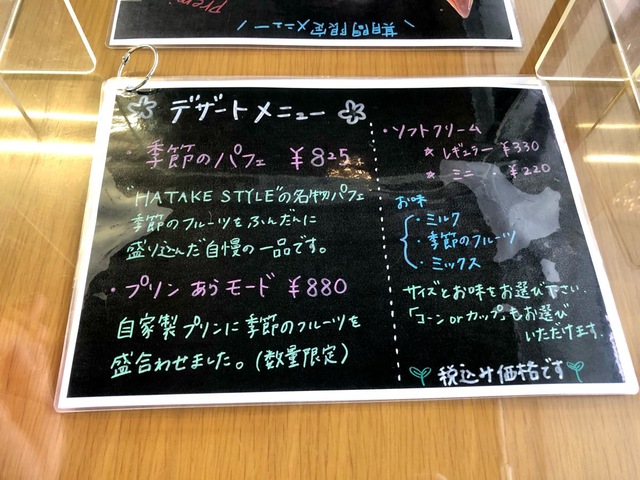 Premi
\ 期間限定メニュー /
デザートメニュー
・季節のパフェ ¥825
"HATAKE STYLE"の名物パフェ
季節のフルーツをふんだんに
盛り込んだ自慢の一品です。
・プリン あらモード ¥880
自家製プリンに季節のフルーツを
盛合わせました。(数量限定)
・ソフトクリーム
* レギュラー ¥330
* ミニ ・ ¥220
お味
・ミルク
・季節のフルーツ
・ミックス
サイズとお味をお選び下さい。
「コーン or カップ」もお選び
いただけます。
税込み価格です